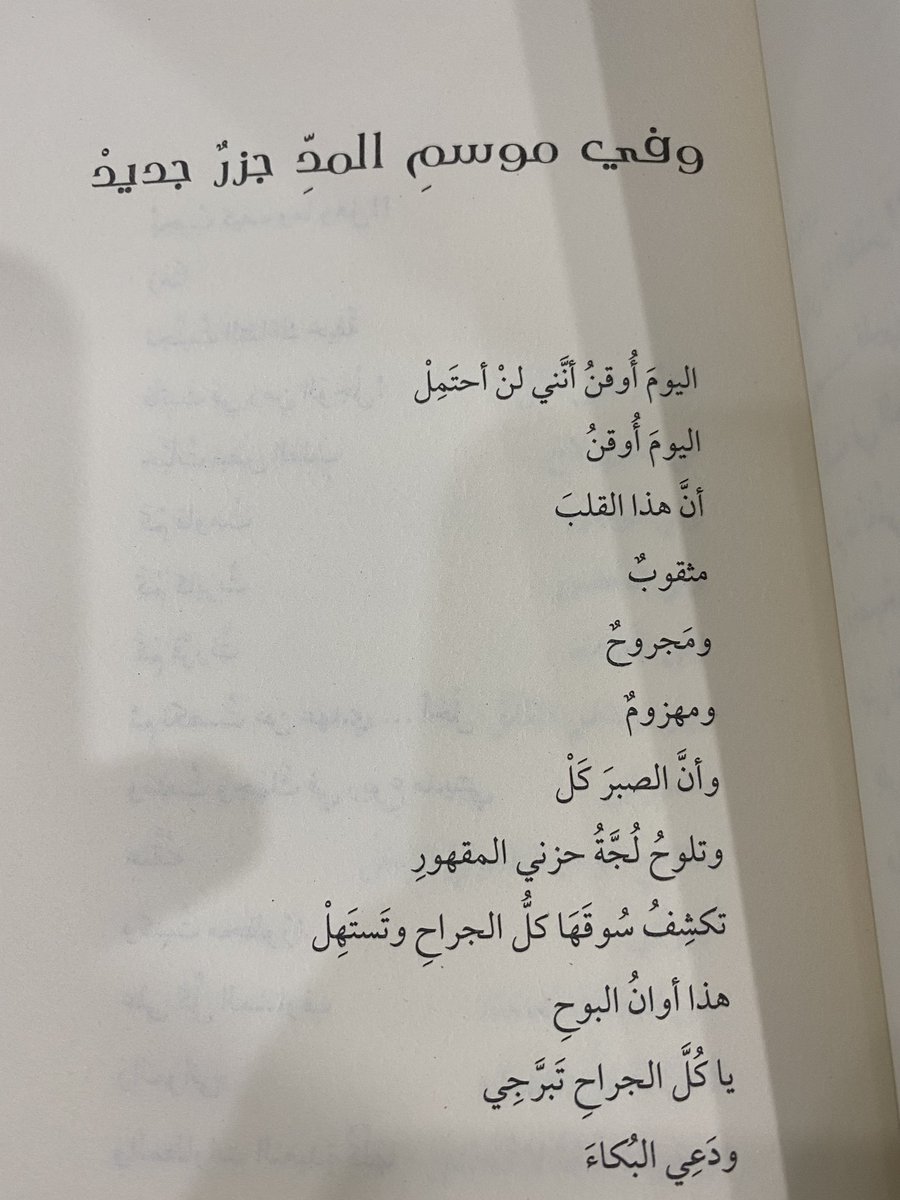 وفي موسمِ المدِّ جزرٌ جديدْ
اليومَ أُوقنُ أنَّني لنْ أحتَمِلْ
اليومَ أُوقنُ
أنَّ هذا القلبَ
مثقوبٌ
ومَجروحٌ
ومهزومٌ
وأنَّ الصبرَ كَلْ
وتلوحُ لُجَّةُ حزني المقهورِ
تكشِفُ سُوقَهَا كلُّ الجراحِ وتَستَهِلْ
هذا أوانُ البوحِ
يا كُلَّ الجراحِ تَبرَّجِي
ودَعِي البُكاءَ